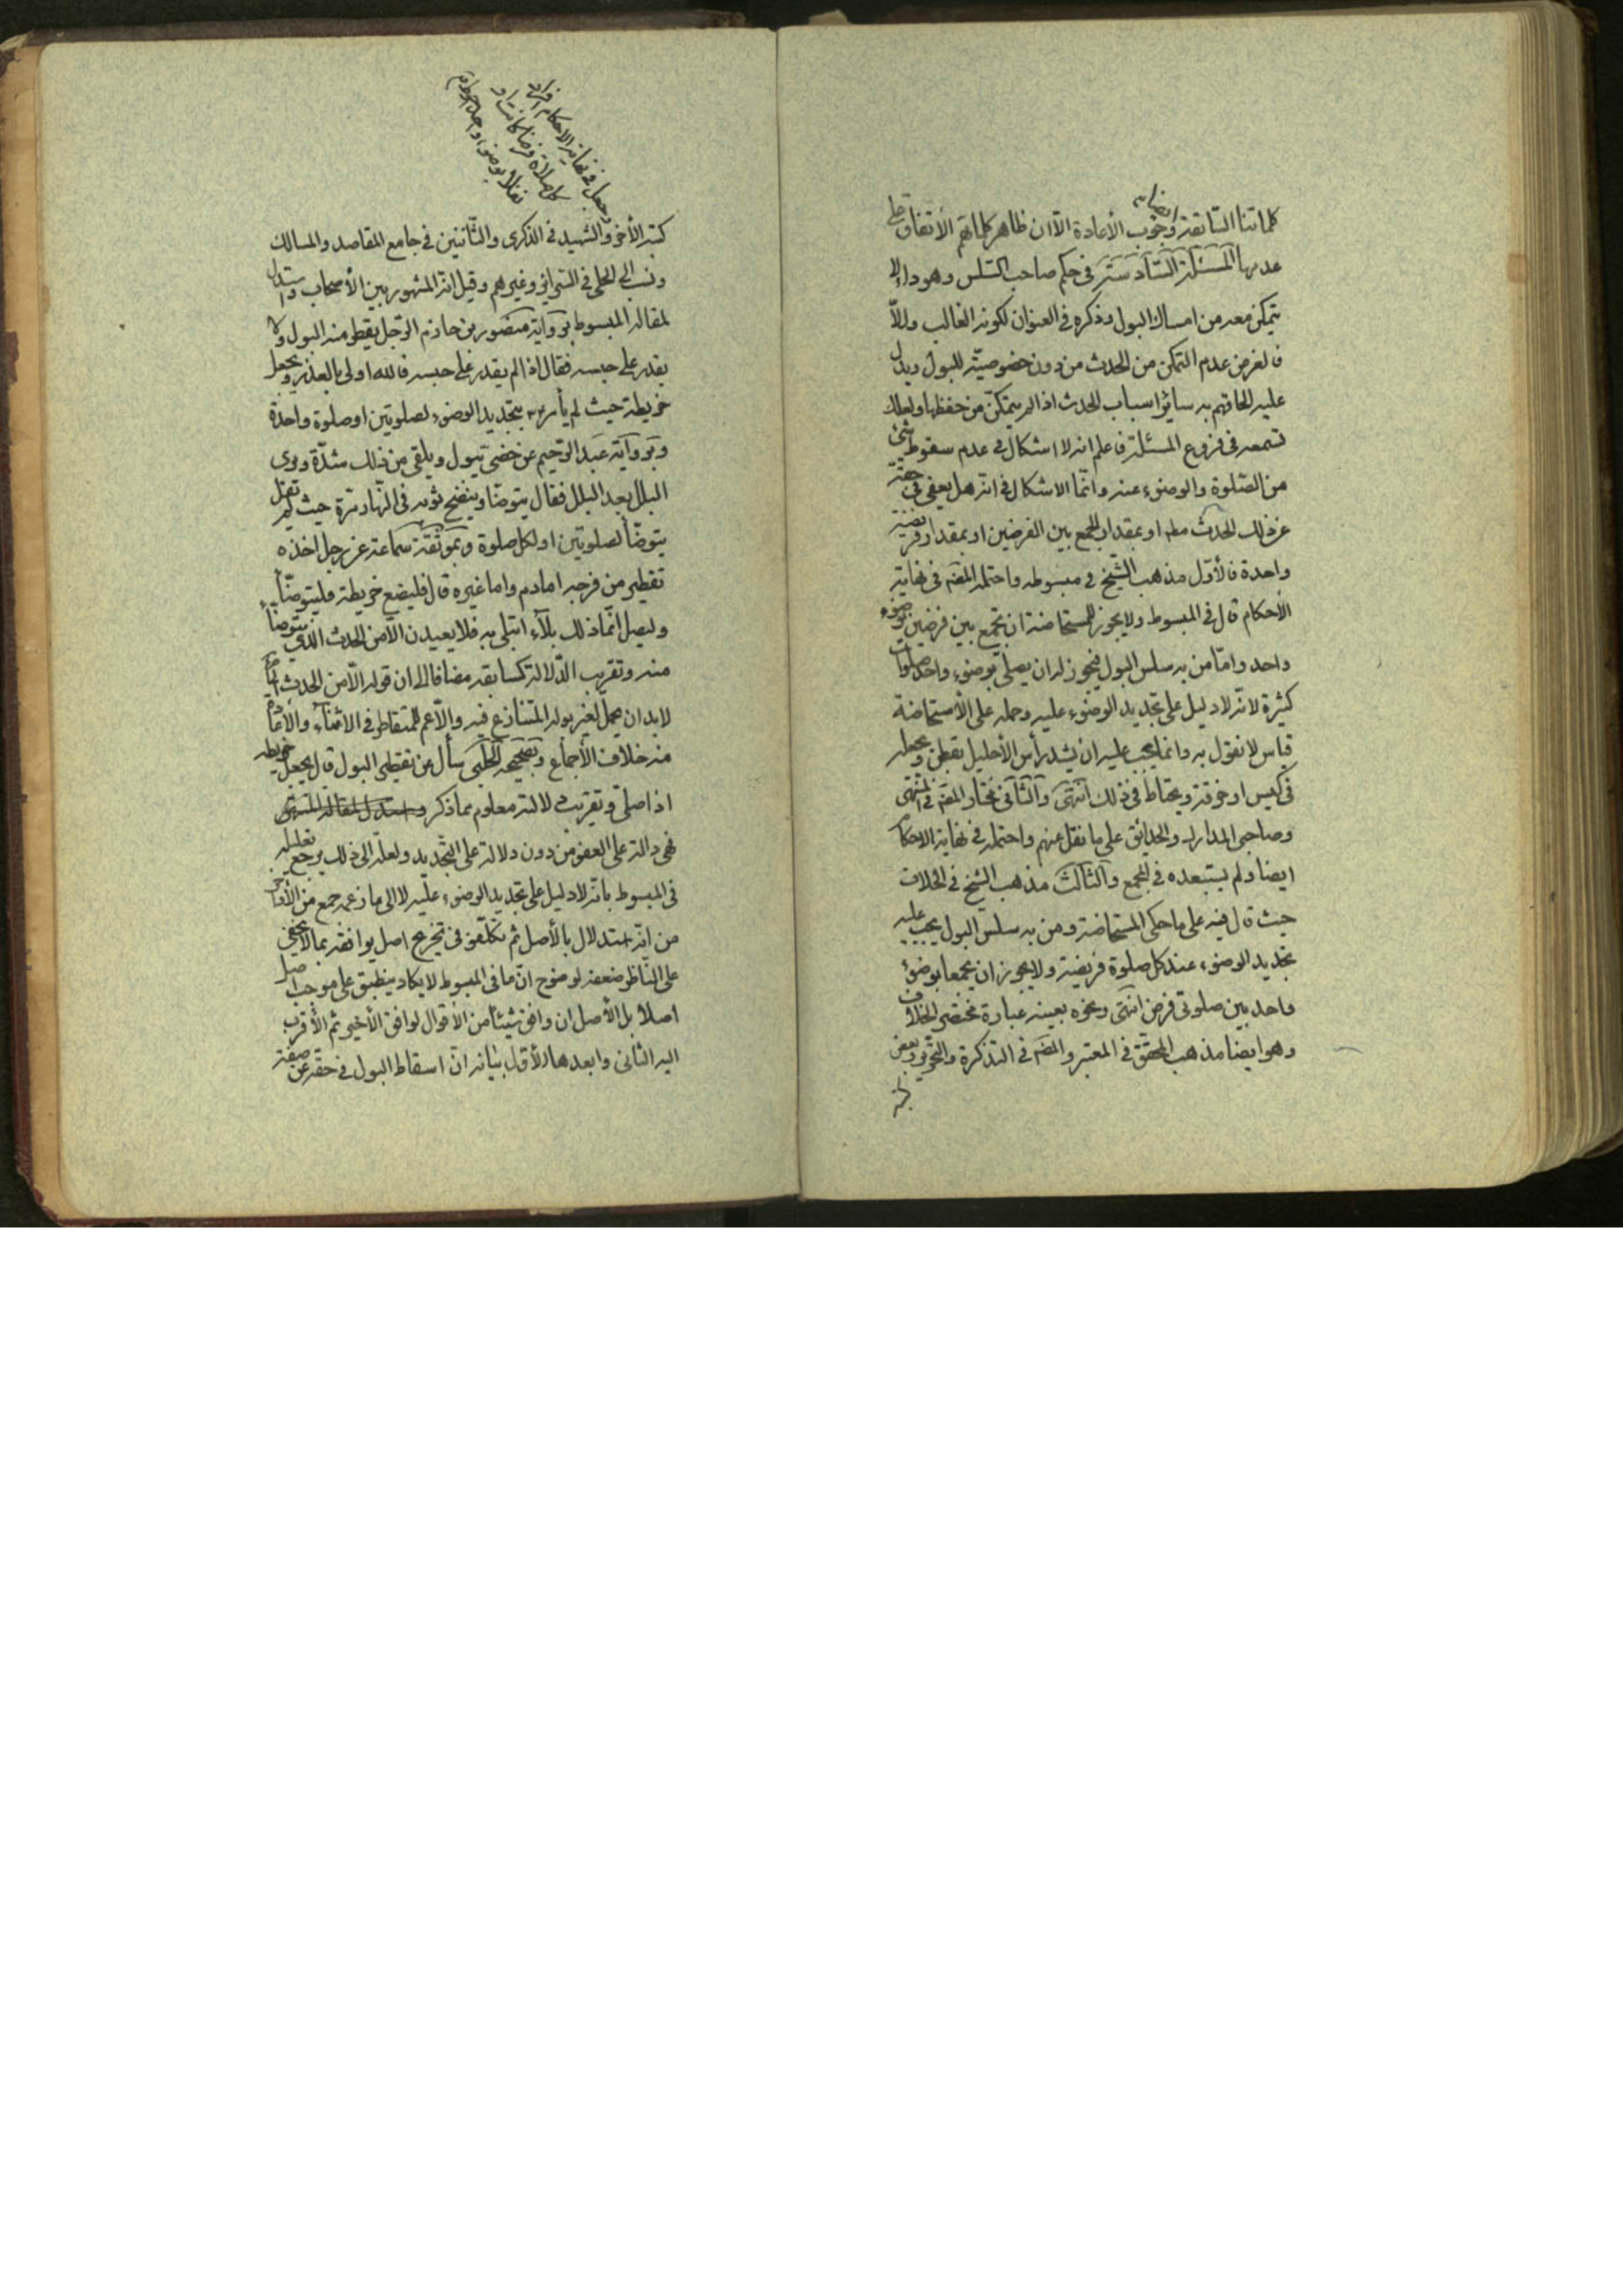 كلماتنا السابقة وجوب الأعادة الّا ان ظاهر كلماتهم الأتفاق على
ايضا
عدمها المسئلة السّادسة في حكم صاحب السّلس وهو داء لا
يتمكن معه من امساك البول وذكره في العنوان لكونه الغالب والّا
فالغرض عدم التمكن من الحدث من دون خصوصيّة للبول ويدل
عليه الحاقهم به سائر اسباب الحدث اذا لم يتمكّن من حفظها ولعلك
تسمعه في فروع المسئلة فاعلم انه لا اشكال في عدم سقوط شئ
من الصّلوة والوضوء عنه وانّما الاشكال في انه هل يعفى في حقه
عن ذلك الحدث مطم او بمقدار الجمع بين الفرضين او بمقدار فريضة
واحدة فالأوّل مذهب الشّيخ في مبسوطه واحتمله المصّم في نهاية
الأحكام قال في المبسوط ولا يجوز للمستحاضة ان تجمع بين فرضين بوضوء
واحد وامّا من به سلس البول فيجوز له ان يصلّي بوضوء واحد صلوات
كثيرة لانّه لا دليل على تجديد الوضوء عليه وحمله على الأستحاضة
قياس لا نقول به وانما يجب عليه ان يشد رأس الأحليل بقطن ويجعله
في كيس او خرقة ويحتاط في ذلك انتهى والثاني مختار المصّم في المنتهى
وصاحبي المدارك والحدائق على ما نقل عنهم واحتمله في نهاية الاحكام
ايضا ولم يستبعده في المجمع والثالث مذهب الشيخ في الخلاف
حيث قال فيه على ما حكى المستحاضة ومن به سلس البول يجب عليه
تجديد الوضوء عند كل صلوة فريضة ولا يجوز ان يجمعا بوضوء
واحد بين صلوتي فرض انتهى ونحوه بعينه عبارة مختصر الخلاف
وهو ايضا مذهب المحقق في المعتبر والمصّم في التذكرة والتحرير وبعض
كتبه
وجعل في نهاية الاحكام افراد
كل صلاة فرضا كانت او
نفلا بوضوء
كتبه الأخر والشهيد في الذكرى والثّانيين في جامع المقاصد والمسالك
ونسب الى الحلي في السرائر وغيرهم وقيل انه المشهور بين الأصحاب واستدل
لمقالة المبسوط برواية منصور بن حازم الرّجل يقطر منه البول ولا
يقدر على حبسه فقال اذا لم يقدر على حبسه فالله اولى بالعذر ويجعل
خريطة حيث لم يأمره بتجديد الوضوء لصلوتين او صلوة واحدة
وبرواية عبد الرّحيم عن خصيّ يبول ويلقى من ذلك شدّة ويرى
البلل بعد البلل فقال يتوضّأ وينضح ثوبه في النّهار مرّة حيث لم يقل
يتوضّأ لصلوتين او لكل صلوة وبموثّقة سماعة عن رجل اخذه
تقطير من فرجه اما دم واما غيره قال فليضع خريطة وليتوضّأ
وليصل انّما ذلك بلاء ابتلى به فلا يعيدن الّا من الحدث الذي يتوضأ
منه وتقريب الدّلالة كسابقه مضافا الى ان قوله الّا من الحدث
لابد ان يحمل لغير بوله المتنازع فيه والّا عم للمتقاطر في الاثناء والأعادة
منه خلاف الأجماع وبصحيحة الحلبي سأل عن تقطير البول قال يجعل خريطة
اذا صلّى وتقريب دلالته معلوم مما ذكر واستدل لمقالة المنتهى
فهي دالة على العفو من دون دلالة على التّجديد ولعلّه الى ذلك يرجع تعليله
في المبسوط بانّه لا دليل على تجديد الوضوء عليه لا الى ما زعمه جمع من الأواخر
من انّه استدلال بالأصل ثم تكلّفوا في تخريج اصل يوافقه بما لا يخفى
على النّاظر ضعفه لوضوح انّ ما في المبسوط لا يكاد ينطبق على موجب اصل
اصلا بل الأصل ان وافق شيئا من الأقوال لوافق الأخير ثم الأقرب
اليه الثّاني وابعدها الأوّل بيانه انّ اسقاط البول في حقه عن صفة